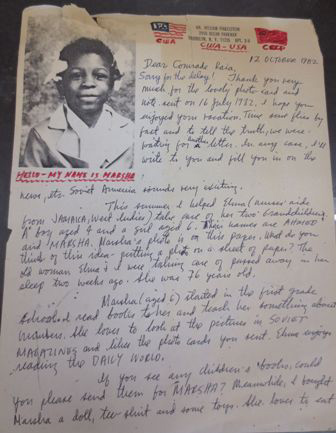 MR. WILLIAM
BROOKLYN, N.Y.
USA
CWA - USA
CCCP
12 OCTOBER 1982
Dear Comrade Raia,
Sorry for the delay! Thank you very
much for the lovely photo-card and
note sent on 16 July 1982. I hope you
enjoyed your vacation. Time sure flies by
fast and to tell the truth, we were
waiting for another letter. In any case, I'll
write to you and fill you in on the
HELLO - MY NAME IS MARSHA
news, etc. Soviet Armenia sounds very exciting.
This summer I helped Elma (nurses aide
from JAMAICA, West Indies) take care of her two Grandchildren.
A boy aged 4 and a girl aged 6. Their names are AHMED
and MARSHA. Marsha's photo is on this page. What do you
think of this idea - putting a photo on a sheet of paper? The
old woman Elma & I were taking care of passed away in her
sleep two weeks ago. She was 76 years old.
Marsha (aged 6) started in the first grade
school. I read books to her and teach her something about
numbers. She loves to look at the pictures in SOVIET
MAGAZINES and likes the photo cards you sent. Elma enjoys
reading the DAILY WORLD.
If you see any children's books, could
you please send them for MARSHA? Meanwhile, I bought
Marsha a doll, tee-shirt and some toys. She loves to eat